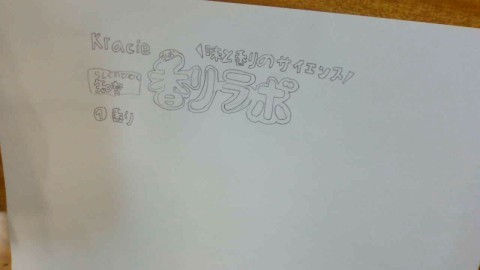 Kracie
\味と香りのサイエンス/
香りラボ
香り